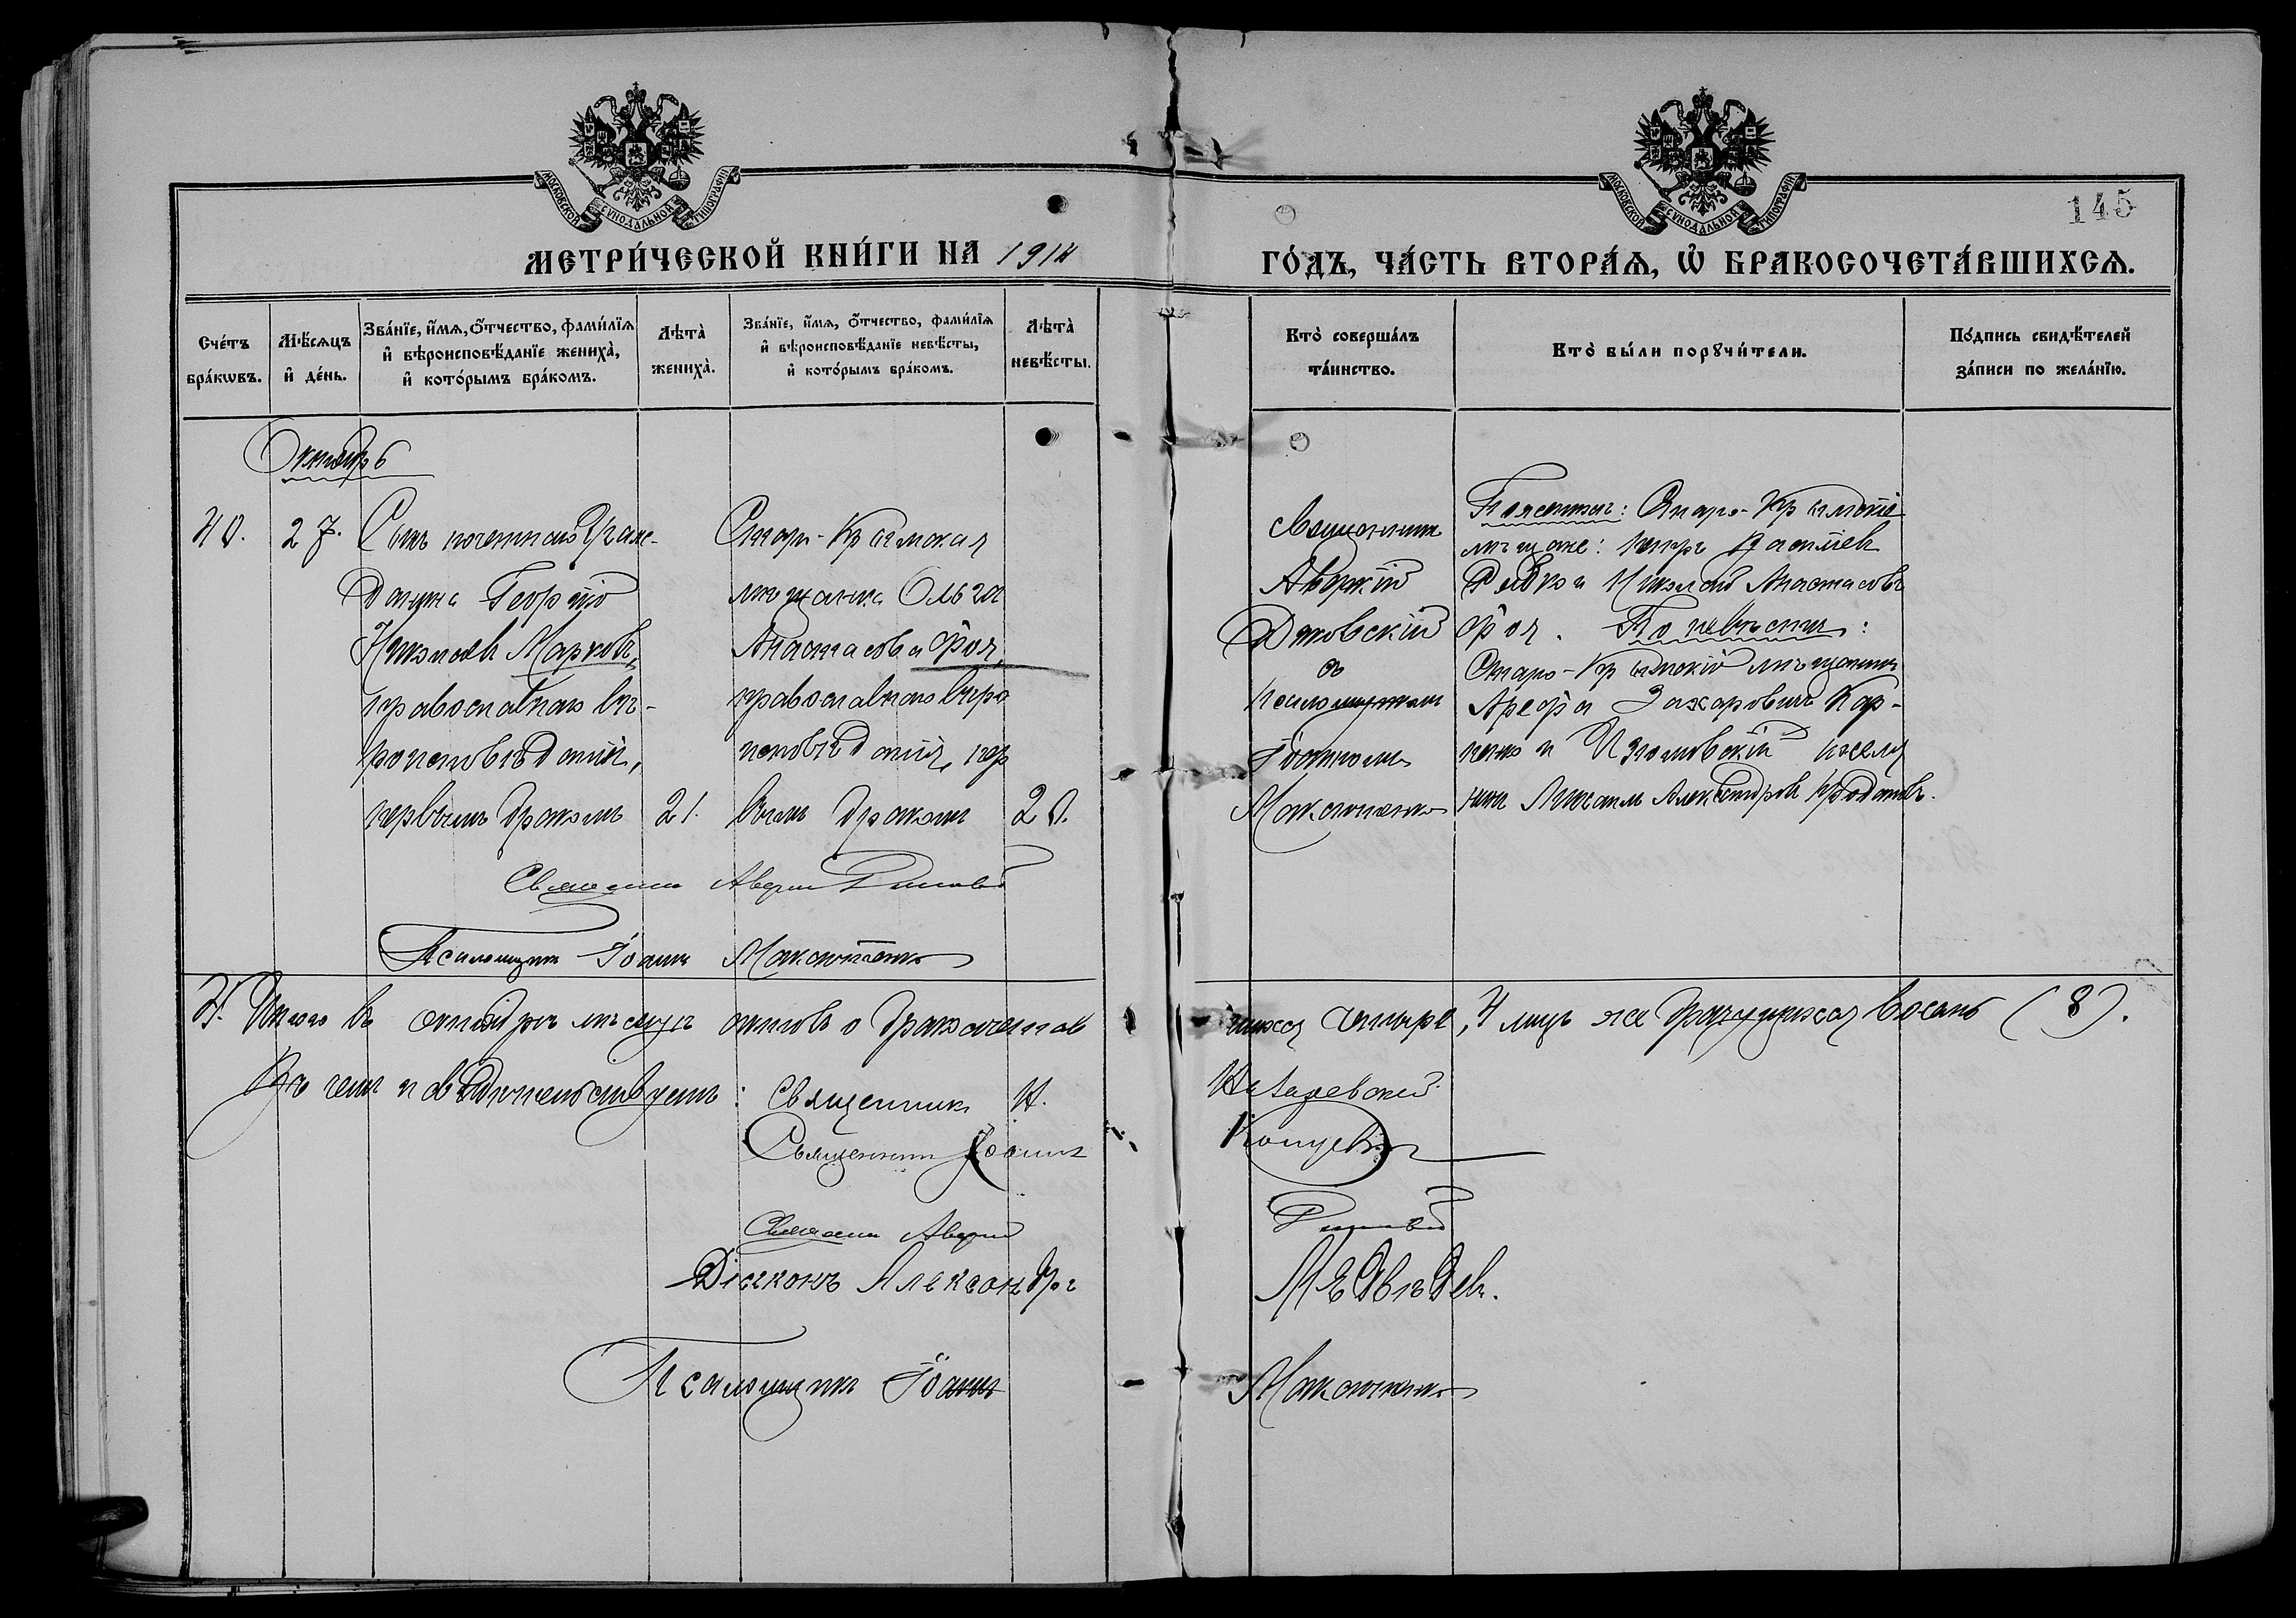 МОСКОВСКОЙ СУНОДАЛЬНОЙ ТИПОГРАФІИ
МОСКОВСКОЙ СУНОДАЛЬНОЙ ТИПОГРАФІИ
145
МЕТРИ́ЧЕСКОЙ КНИ́ГИ НА 1914
ГО́ДЪ, ЧА́СТЬ ВТОРА́Ѧ, Ѡ҆ БРАКОСОЧЕТА́ВШИХСѦ.
Сче́тъ бра́кѡвъ.
Мѣ́сѧцъ и҆ де́нь.
Зва́нїе, и҆́мѧ, ѻ҆́тчество, фами́лїѧ и҆ вѣроисповѣ́данїе жениха̀, и҆ кото́рымъ бра́комъ.
Лѣта̀ жениха̀.
Зва́нїе, и҆́мѧ, ѻ҆́тчество, фами́лїѧ и҆ вѣроисповѣ́данїе невѣ́сты, и҆ кото́рымъ бра́комъ.
Лѣта̀ невѣ́сты.
Кто̀ соверша́лъ та́инство.
Кто̀ бы́ли порꙋчи́тели.
По́дпись свидѣ́телей за́писи по жела́нїю.
Октябрь
40.
27.
Сынъ почетнаго граж-
данина Георгій
Николаевъ Марковъ,
православнаго вѣ-
роисповѣданія,
первымъ бракомъ
21.
Старо-Крымская
мѣщанка Ольга
Анастасова
православнаго вѣро
исповѣданія, пер
вымъ бракомъ
20.
Священникъ
Аверкій
съ
псаломщикомъ
Іоанномъ
Максютенко
По женихѣ: Старо-Крымскіе
мѣщане: Петръ Васильевъ
и Николай Анастасовъ
По невѣстѣ:
Старо-Крымскій мѣщанинъ
Арефа Захаровичъ Кар-
пенко и поселя
нинъ Михаилъ Александровъ
Священникъ Аверкій
Псаломщикъ Іоаннъ Максютенко
Итого въ октябрѣ мѣсяцѣ актовъ о бракосочетав
шихся четыре, 4 лицъ же брачущихся восемь (8).
въ чемъ и свидѣтельствуемъ: Священникъ Н.
Священникъ Іоаннъ
Священникъ Аверкій
Діаконъ Александръ Медвѣдевъ.
Псаломщикъ Іоаннъ Максютенко